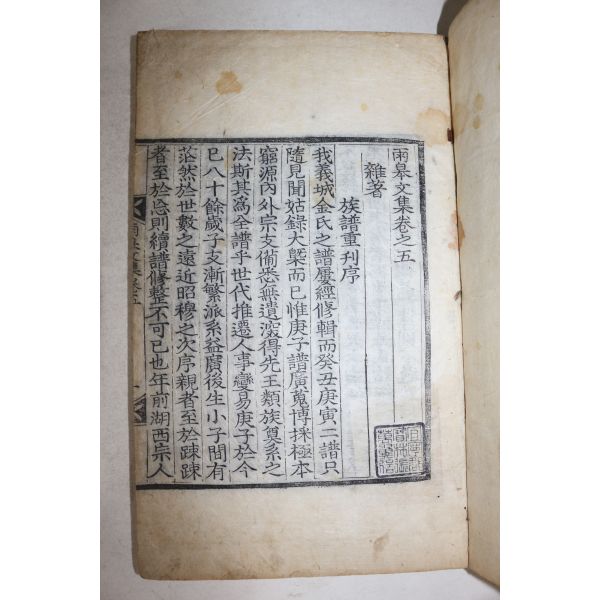 雨皐文集卷之五
雜著
族譜重刊序
我義城金氏之譜屢經修輯而癸丑庚寅二譜只
隨見聞姑錄大槩而已惟庚子譜廣蒐博採極本
窮源內外宗支備悉無遺深得先王類族奠系之
法斯其爲全譜乎世代推遷人事變易庚子於今
已八十餘歲子支漸繁派系益廣後生小子間有
茫然於世數之遠近昭穆之次序親者至於踈踈
者至於忘則續譜修整不可已也年前湖西宗人